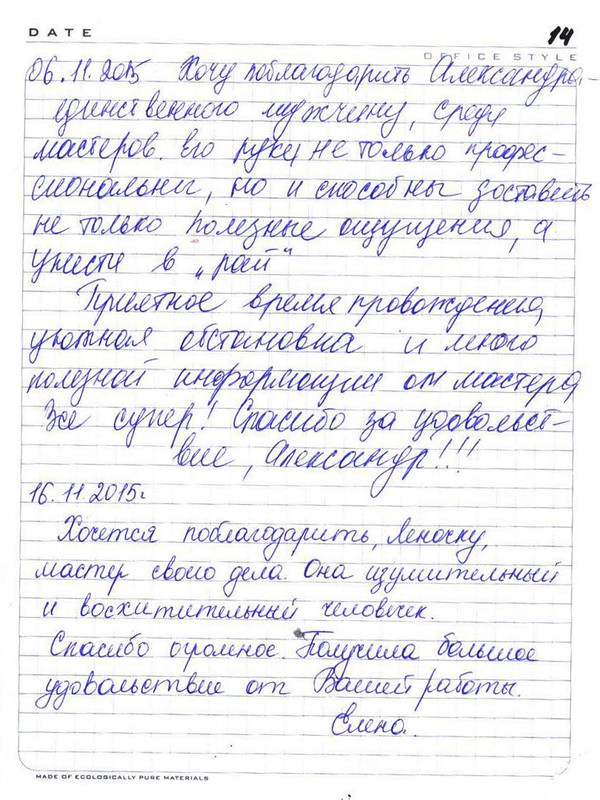 DATE
14
OFFICE STYLE
06.11.2015 Хочу поблагодарить Александра-
единственного мужчину, среди
мастеров. Его руки не только профес-
сиональны, но и способны доставить
не только полезные ощущения, а
унести в „рай“
Приятное время провождение,
уютная обстановка и много
полезной информации от мастера
Все супер! Спасибо за удовольст-
вие, Александр!!!
16.11.2015г
Хочется поблагодарить, Леночку,
мастер своего дела. Она изумительный
и восхитительный человечек.
Спасибо огромное. Получила большое
удовольствие от Вашей работы.
Елена.
MADE OF ECOLOGICALLY PURE MATERIALS